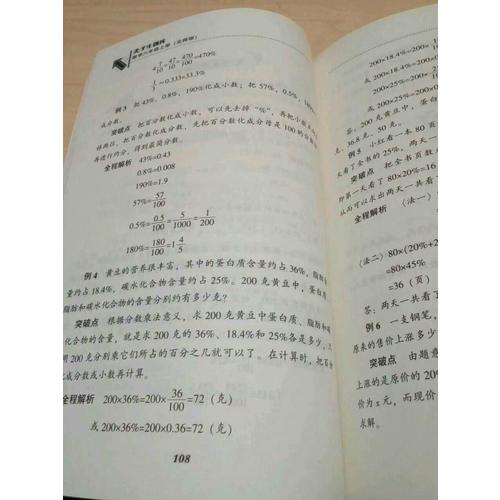 尖子生题库
数学六年级上册（北师版）
4 7/10=47/10=470/100=470%
1/3≈0.333=33.3%
例3 把43%，0.8%，190%化成小数；把57%，0.5%，180%化
成分数。
突破点 把百分数化成小数，可以先去掉“%”，再把小数点向左
移两位。把百分数化成分数，先把百分数化成分母是100的分数，
再进行约分，得到最简分数。
全程解析 43%=0.43
0.8%=0.008
190%=1.9
57%=57/100
0.5%=0.5/100=5/1000=1/200
180%=180/100=1 4/5
例4 黄豆的营养很丰富，其中的蛋白质含量约占36%，脂肪含
量约占18.4%，碳水化合物含量约占25%。200克黄豆中，蛋白质、
脂肪和碳水化合物的含量分别约有多少克？
突破点 根据分数乘法意义，求200克黄豆中蛋白质、脂肪和碳
水化合物的含量，就是求200克的36%、18.4%和25%各是多少，
用200克分别乘它们所占的百分之几就可以了。在计算时，把百分
化成分数或小数再计算。
全程解析 200×36%=200×36/100=72（克）
或200×36%=200×0.36=72（克）
108
200×18.4%=200
或200×18.4%=
200×25%=200×
或200×25%=20
答：200克黄豆中，蛋白
克，36.8克，50克。
例5 小红看一本80页
天看了全书的25%，两天一
突破点 把全书页数
即第一天看了80×20%=16
从而可以求出两天一共看了
全程解析 （法一）
（法二）80×(20%+2
=80×45%
=36（页）
答：两天一共看了
例6 一支钢笔，
原来的售价上涨多少
突破点 由题意
上涨的是原价的20%
价为x元，而现价
求解。